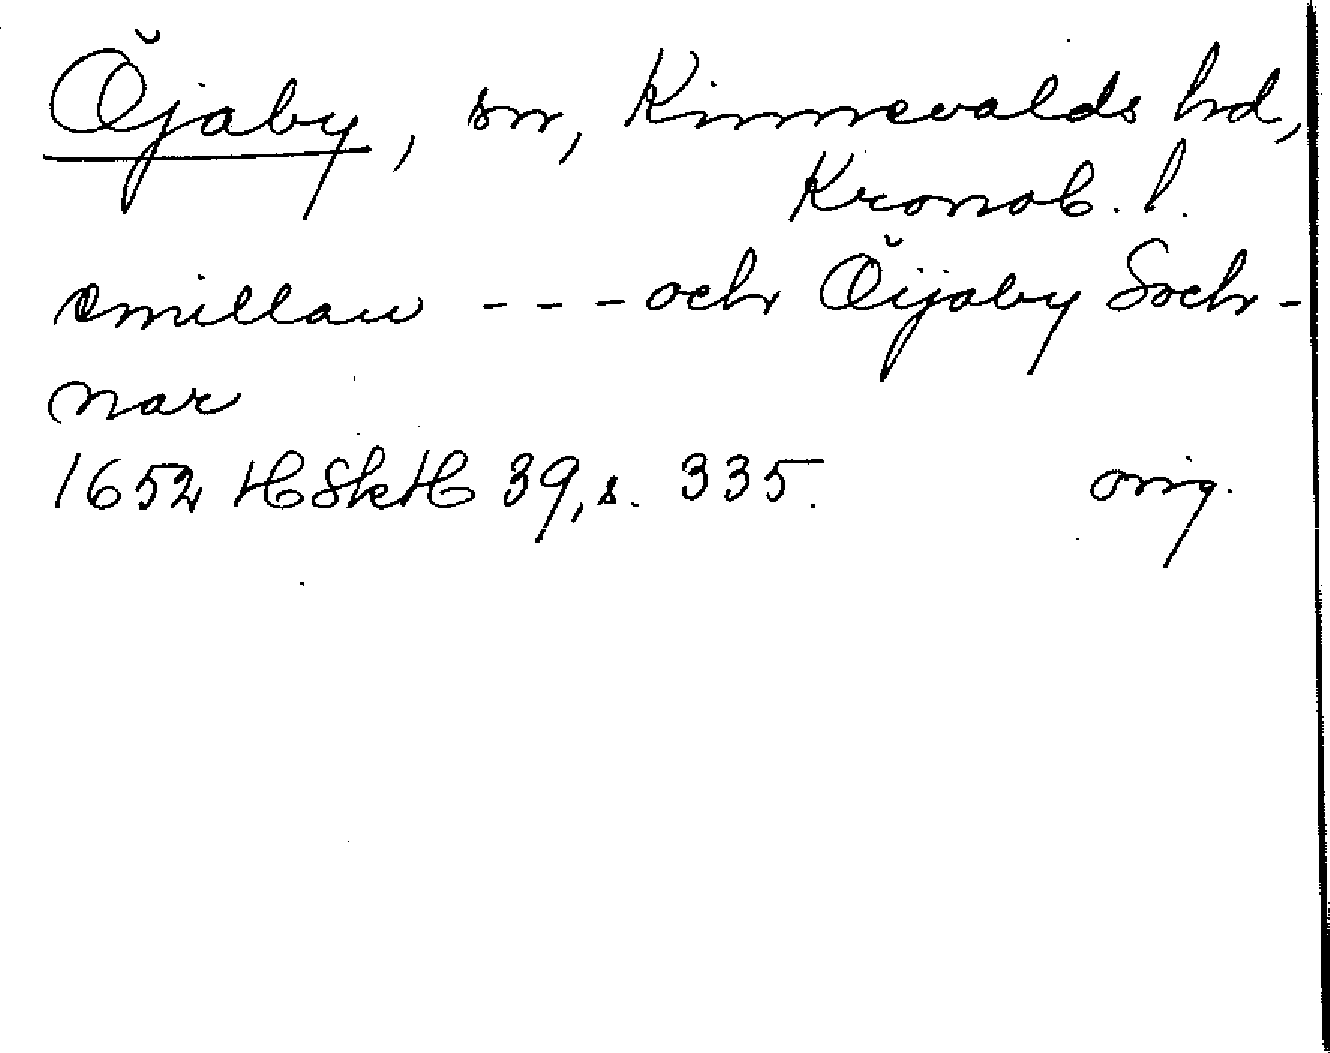 Öjaby, sn, Kinnevalds hd,
Kronob. l.
emillan --- och Öijaby Soch-
nar
1652 HSkH 39, s. 335.
orig.